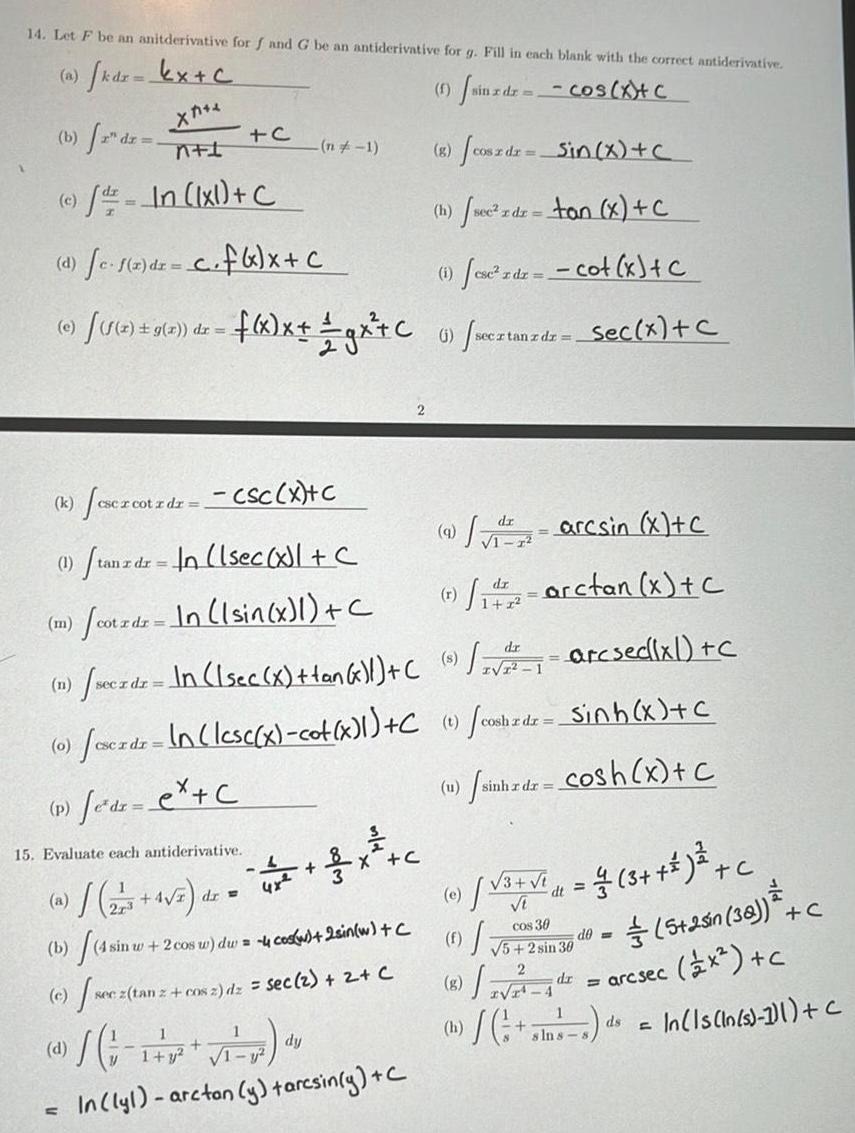 14. Let F be an anitderivative for f and G be an antiderivative for g. Fill in each blank with the correct antiderivative.
(a) ∫ k dx = kx + C
(b) ∫ xⁿ dx = xⁿ⁺¹/(n+1) + C (n ≠ −1)
(c) ∫ dx/x = ln(|x|) + C
(d) ∫ c · f(x) dx = c.f(x)x + C
(e) ∫ (f(x) ± g(x)) dx = f(x)x ± 1/2 gx² + C
(f) ∫ sin x dx = −cos(x)+C
(g) ∫ cos x dx = sin(x)+C
(h) ∫ sec² x dx = tan(x)+C
(i) ∫ csc² x dx = −cot(x)+C
(j) ∫ sec x tan x dx = sec(x)+C
2
(k) ∫ csc x cot x dx = −csc(x)+C
(l) ∫ tan x dx = ln(|sec(x)| + C
(m) ∫ cot x dx = ln(|sin(x)|)+C
(n) ∫ sec x dx = ln(|sec(x)+tan(x)|)+C
(o) ∫ csc x dx = ln(|csc(x)−cot(x)|)+C
(p) ∫ eˣ dx = eˣ+C
(q) ∫ dx/√(1−x²) = arcsin(x)+C
(r) ∫ dx/(1+x²) = arctan(x)+C
(s) ∫ dx/(x√(x²−1)) = arcsec(|x|)+C
(t) ∫ cosh x dx = sinh(x)+C
(u) ∫ sinh x dx = cosh(x)+C
15. Evaluate each antiderivative.
(a) ∫ (1/(2x³) + 4√x) dx = −1/(4x²) + 8/3 x^(3/2) + C
(b) ∫ (4 sin w + 2 cos w) dw = −4 cos(w)+2sin(w)+C
(c) ∫ sec z(tan z + cos z) dz = sec(z) + z + C
(d) ∫ (1/y − 1/(1+y²) + 1/√(1−y²)) dy
= ln(|y|) − arctan(y) + arcsin(y) + C
(e) ∫ √(3+√t)/√t dt = 4/3 (3+t^(1/2))^(3/2) + C
(f) ∫ cos 3θ/√(5+2 sin 3θ) dθ = 1/3 (5+2sin(3θ))^(1/2) + C
(g) ∫ 2/(x√(x⁴−4)) dx = arcsec(1/2 x²)+C
(h) ∫ (1/s + 1/(s ln s − s)) ds = ln(|s(ln(s)−1)|)+C